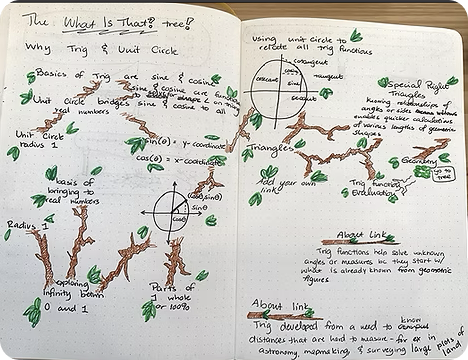 The: What Is That? tree!?
Why Trig & Unit Circle
Basics of Trig are sin & cosine
sine & cosine are functions
Unit Circle bridges sine & cosine to all
real numbers
Unit Circle
radius 1
sin(θ) = y-coordinate
cos(θ) = x-coordinate
basis of
bringing to
real numbers
(cosθ, sinθ)
sinθ
cosθ
Radius 1
exploring
infinity between
0 and 1
Parts of
1 whole
or 100%
using unit circle to
relate all trig functions
cotangent
cosine
tangent
cosecant
sine
secant
Special Right
Triangles
Knowing relationships of
angles or sides
enables quicker calculations
of various lengths of geometric
shapes
Triangles
Geometry
go to
tree
Add your own
link!
Trig function
Evaluation
About link
Trig functions help solve unknown
angles or measures bc they start w/
what is already known from geometric
figures
About link
Trig developed from a need to know
distances that are hard to measure - for ex in
astronomy mapmaking & surveying large plots of
land